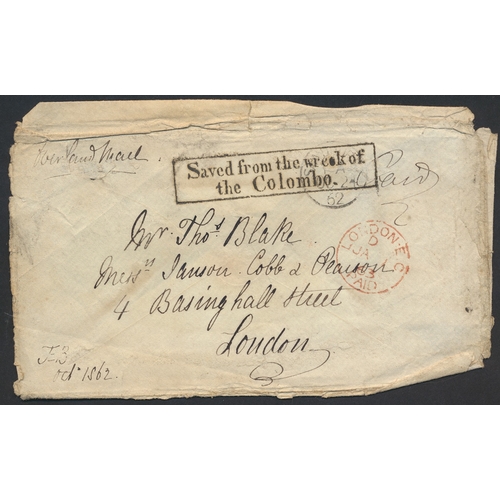 Overland Mail
Saved from the wreck of
the Colombo.
62
Paid
LONDON·E.C
D
JA
63
PAID
Mr. Thos. Blake
Messrs Janson. Cobb & Pearson
4 Basinghall Street
London
Octr 1862.